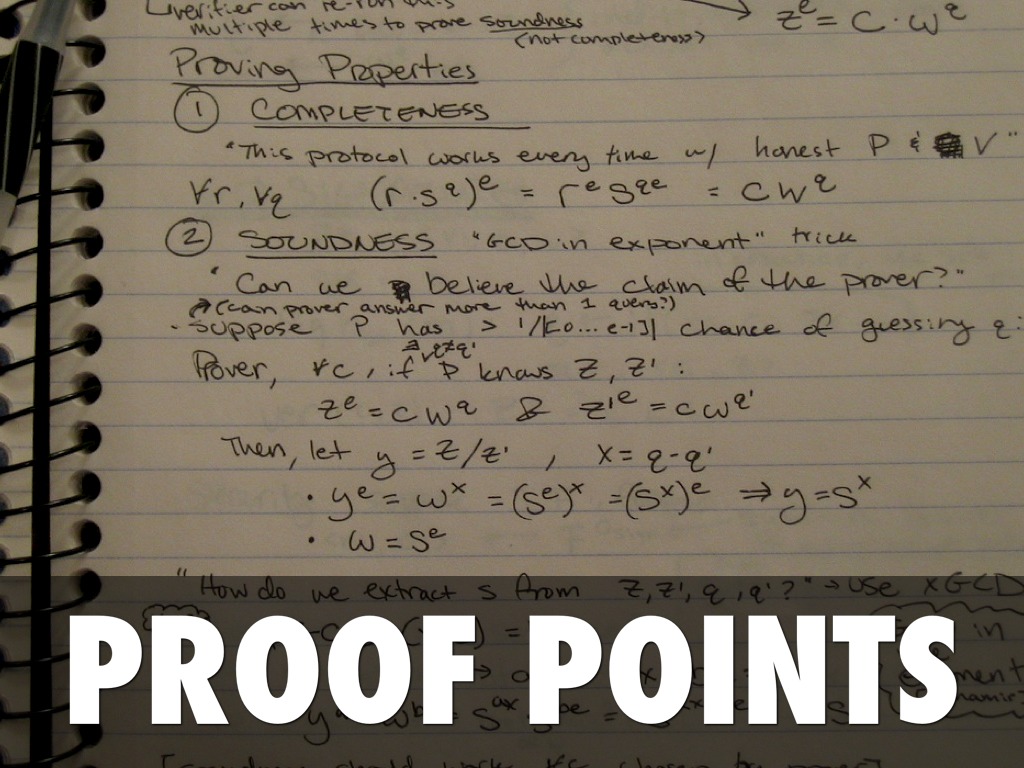 verifier can re-run this
multiple times to prove soundness
(not completeness)
z^e = c · w^q
Proving Properties
① COMPLETENESS
"This protocol works every time w/ honest P & V"
∀r, ∀q (r·s^q)^e = r^e s^qe = c w^q
② SOUNDNESS "GCD in exponent" trick
"Can we believe the claim of the prover?"
(can prover answer more than 1 query?)
· Suppose P has > 1/|[0...e-1]| chance of guessing q:
∀q≠q'
Prover, ∀c, if P knows z, z':
z^e = c w^q & z'^e = c w^q'
Then, let y = z/z' , x = q-q'
· y^e = w^x = (s^e)^x = (s^x)^e ⇒ y = s^x
· w = s^e
"How do we extract s from z, z', q, q'?" → use xGCD
in
PROOF POINTS